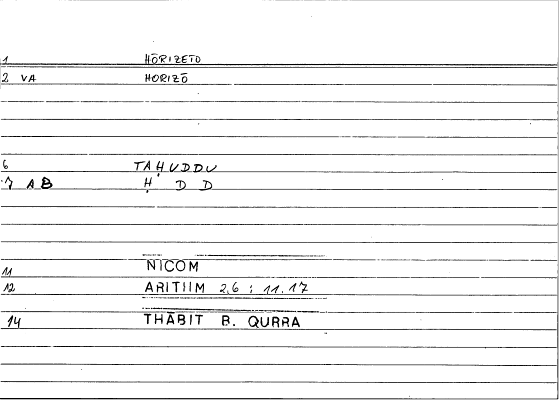 1 HŌRIZETO
2 VA HORIZŌ
6 TAḤUDDU
7 AB Ḥ D D
11 NICOM
12 ARITHM 2,6 : 11.17
14 THĀBIT B. QURRA